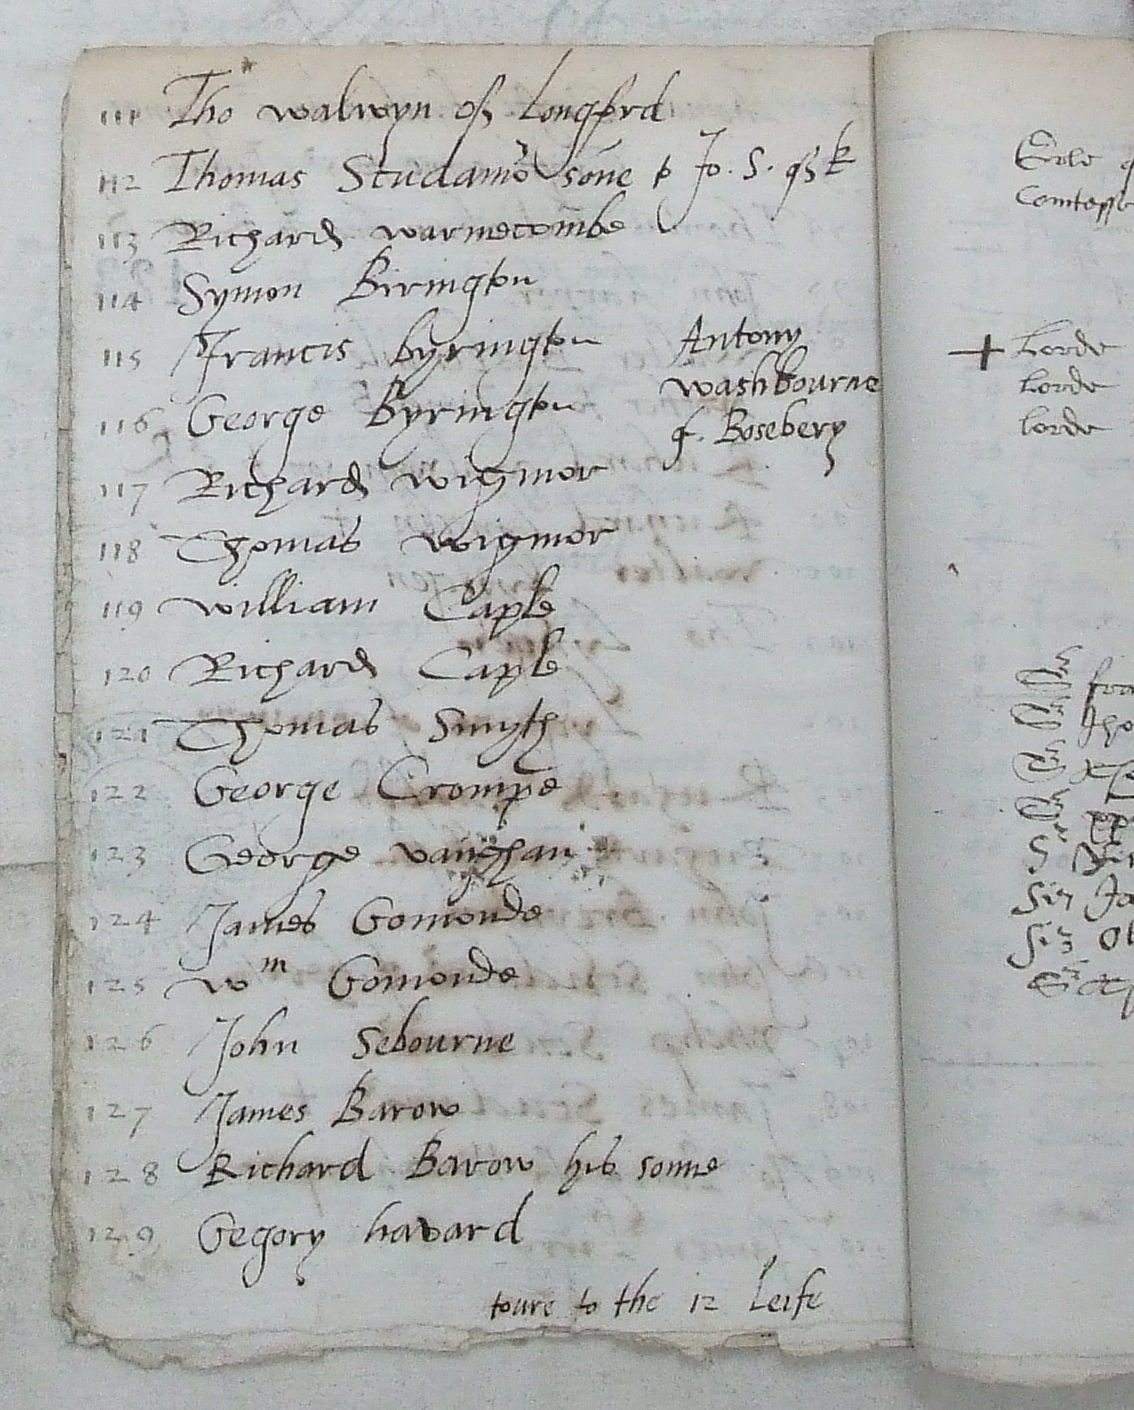 111 Tho walwyn of Longford
112 Thomas Scudamo sone to Jo. S. of k
113 Richard warmecombe
114 Symon Birington
115 Francis byrington
116 George Byrington
Antony
washbourne
of. Bosebery
117 Richard wigmor
118 Thomas wigmor
119 william Caple
120 Richard Caple
121 Thomas Smyth
122 George Crompe
123 George vaughan
124 James Gomonde
125 wm Gomonde
126 John Sebourne
127 James Barow
128 Richard Barow his sonne
129 Gegory havard
toure to the 12 Leife
Erle
Comtesse
+ Lorde
lorde
lorde
Sir
Sir